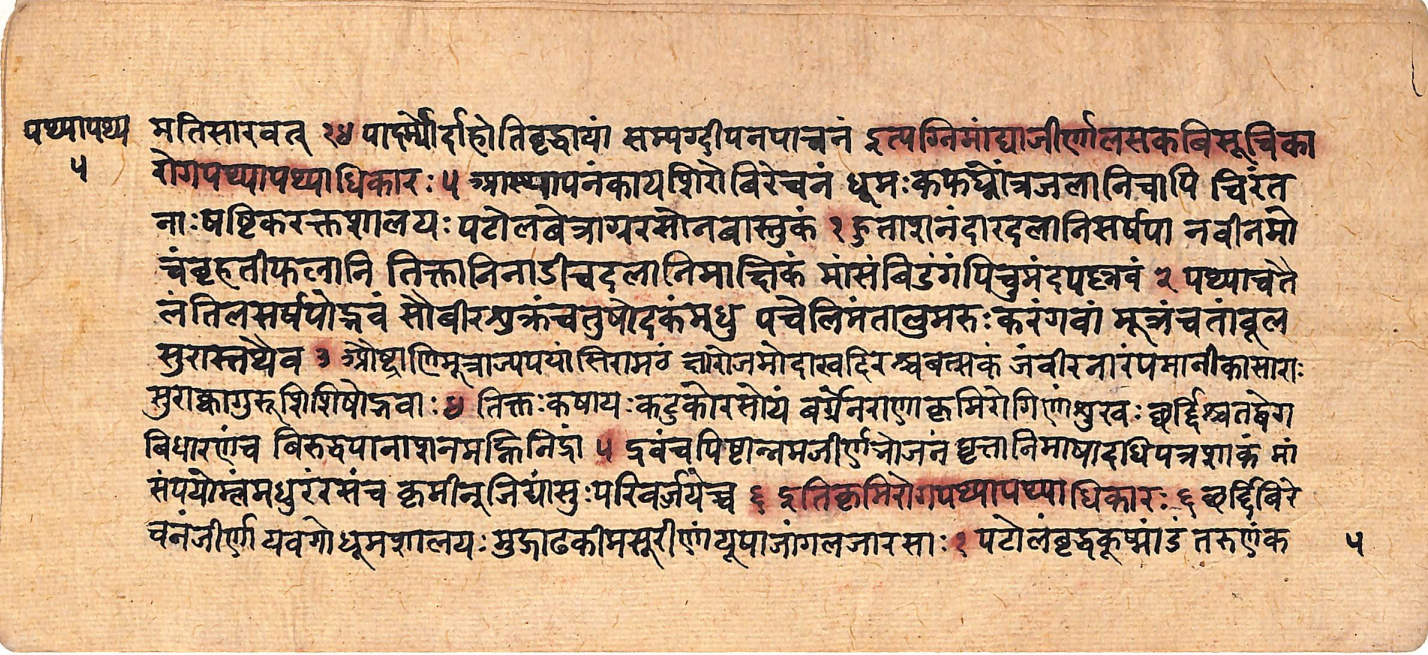 पथ्यापथ्य
५
मतिसारवत् १४ पार्ष्ण्यो र्दाहोतिवृद्धायां सम्यग्दीपनपाचनं इत्यग्निमांद्याजीर्णालसकविसूचिका
रोगपथ्यापथ्याधिकारः ५ आस्थापनंकायशिरोविरेचनं धूमःकफघ्नोत्रजलानिचापि चिरंत
नाःषष्टिकरक्तशालयःपटोलवेत्राग्ररसोनवास्तुकं १ हुताशनंदारदलानिसर्षपा नवीनमो
चंवृहतीफलानि तिक्तानिनाडीचदलानिमाक्षिकं मांसंविडंगंपिचुमंदपल्लवं २ पथ्याचतै
लंतिलसर्षपोद्भवं सौवीरशुक्तंचतुषोदकंमधु पचेलिमंतालुमरुःकरंगवां मूत्रंचतांवूल
सुरास्तथैव ३ औष्ट्राणिमूत्राज्यपयांसिरामठं क्षारोजमोदाखदिरश्चवत्सकं जंवीरनारंपमानीकासाराः
सुराह्वागुरुशिशिषोद्भवाः ४ तिक्तःकषायःकटुकोरसोयं वर्ग्गेनराणाकृमिरोगिणांशुखः छर्द्दिश्चतद्वेग
विधारणंच विरुद्धपानाशनमह्निनिद्रां ५ द्रवंचपिष्टान्नमजीर्णभोजनं घृत्तानिमाषादधिपत्रशाकं मां
संपयोम्लमधुरंरसंच कृमीन्जिघांसुःपरिवर्जयेच्च ६ इतिकृमिरोगपथ्यापथ्याधिकारः ६ छर्द्दिविरे
चनंजीर्णा यवगोधूमशालयः मुद्गाढकीमसूरीणांयूषाजांगलजारसाः १ पटोलंवृद्धकूष्मांडं तरुणंक
५